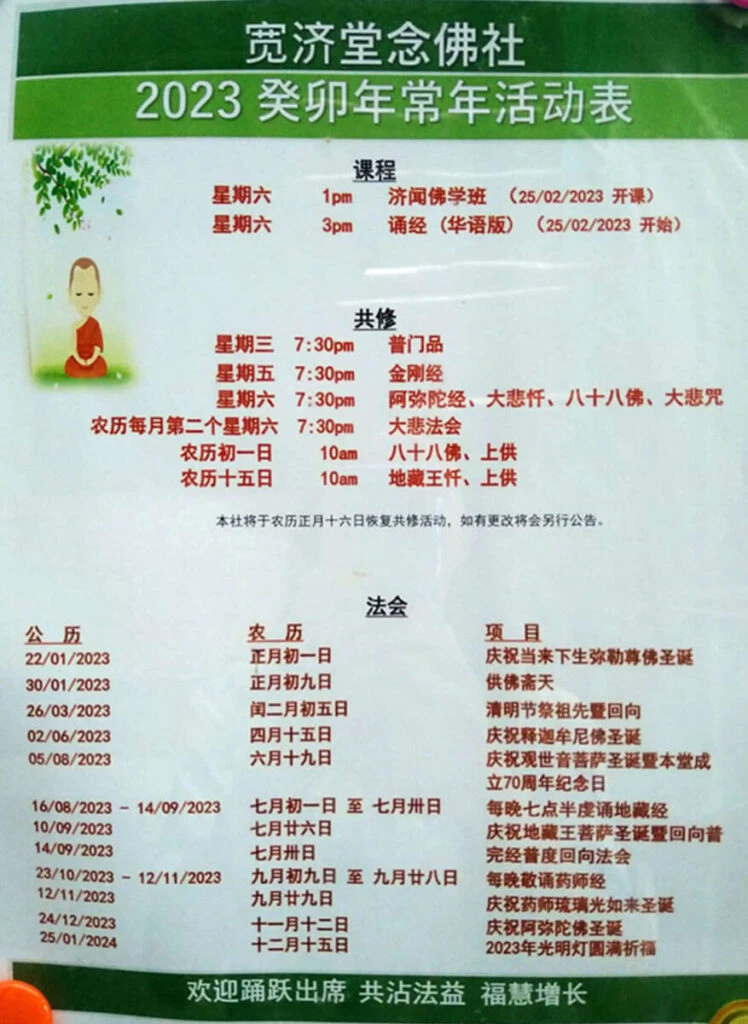 宽济堂念佛社
2023 癸卯年常年活动表
课程
星期六 1pm 济闻佛学班 (25/02/2023 开课)
星期六 3pm 诵经 (华语版) (25/02/2023 开始)
共修
星期三 7:30pm 普门品
星期五 7:30pm 金刚经
星期六 7:30pm 阿弥陀经、大悲忏、八十八佛、大悲咒
农历每月第二个星期六 7:30pm 大悲法会
农历初一日 10am 八十八佛、上供
农历十五日 10am 地藏王忏、上供
本社将于农历正月十六日恢复共修活动，如有更改将会另行公告。
法会
公 历 农 历 项 目
22/01/2023 正月初一日 庆祝当来下生弥勒尊佛圣诞
30/01/2023 正月初九日 供佛斋天
26/03/2023 闰二月初五日 清明节祭祖先暨回向
02/06/2023 四月十五日 庆祝释迦牟尼佛圣诞
05/08/2023 六月十九日 庆祝观世音菩萨圣诞暨本堂成
立70周年纪念日
16/08/2023 - 14/09/2023 七月初一日 至 七月卅日 每晚七点半虔诵地藏经
10/09/2023 七月廿六日 庆祝地藏王菩萨圣诞暨回向普
14/09/2023 七月卅日 完经普度回向法会
23/10/2023 - 12/11/2023 九月初九日 至 九月廿八日 每晚敬诵药师经
12/11/2023 九月廿九日 庆祝药师琉璃光如来圣诞
24/12/2023 十一月十二日 庆祝阿弥陀佛圣诞
25/01/2024 十二月十五日 2023年光明灯圆满祈福
欢迎踊跃出席 共沾法益 福慧增长